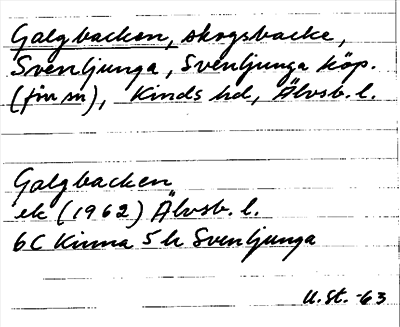 Galgbacken, skogsbacke,
Svenljunga, Svenljunga köp.
(fin sn), Kinds hd, Älvsb. l.
Galgbacken
ek (1962) Älvsb. l.
6C Kinna 5h Svenljunga
U. St. -63